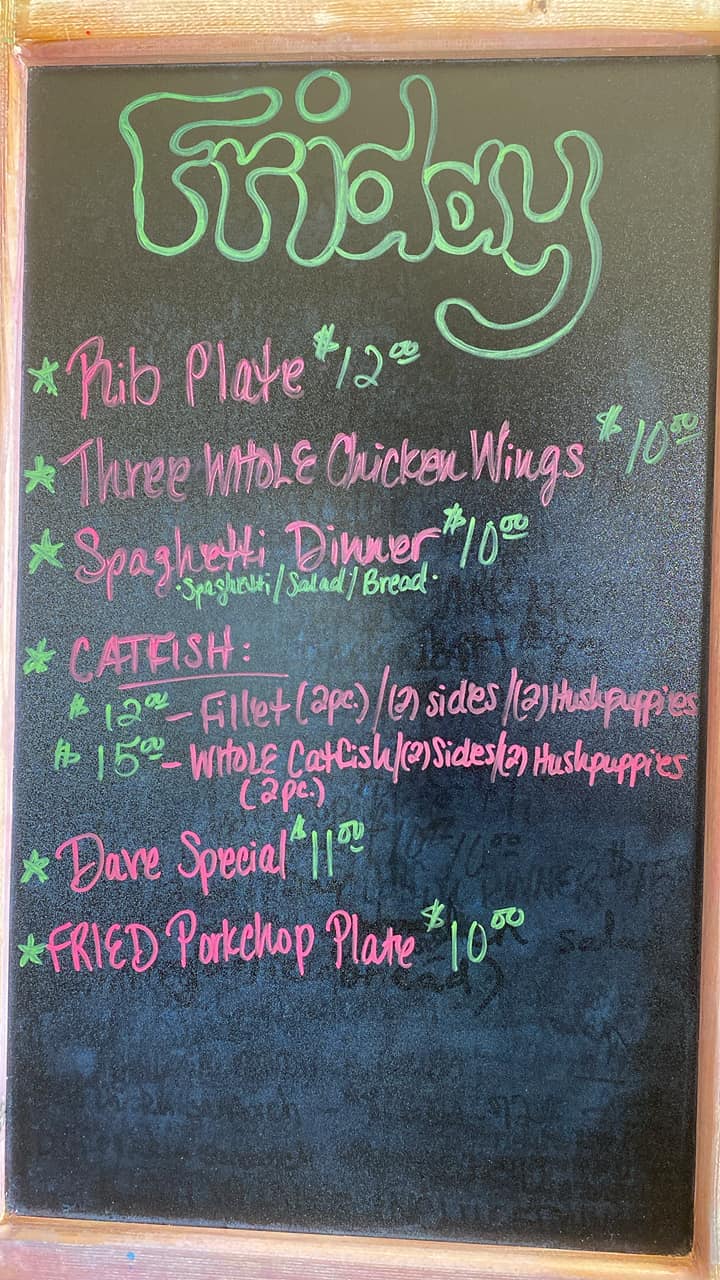 Friday
Rib Plate $12.00
Three WHOLE Chicken Wings $10.00
Spaghetti Dinner $10.00
• Spaghetti / Salad / Bread •
CATFISH:
$12.00 - Fillet (2pc.) / (2) sides / (2) Hushpuppies
$15.00 - WHOLE Catfish / (2) Sides / (2) Hushpuppies
(2pc.)
Dave Special $11.00
FRIED Porkchop Plate $10.00